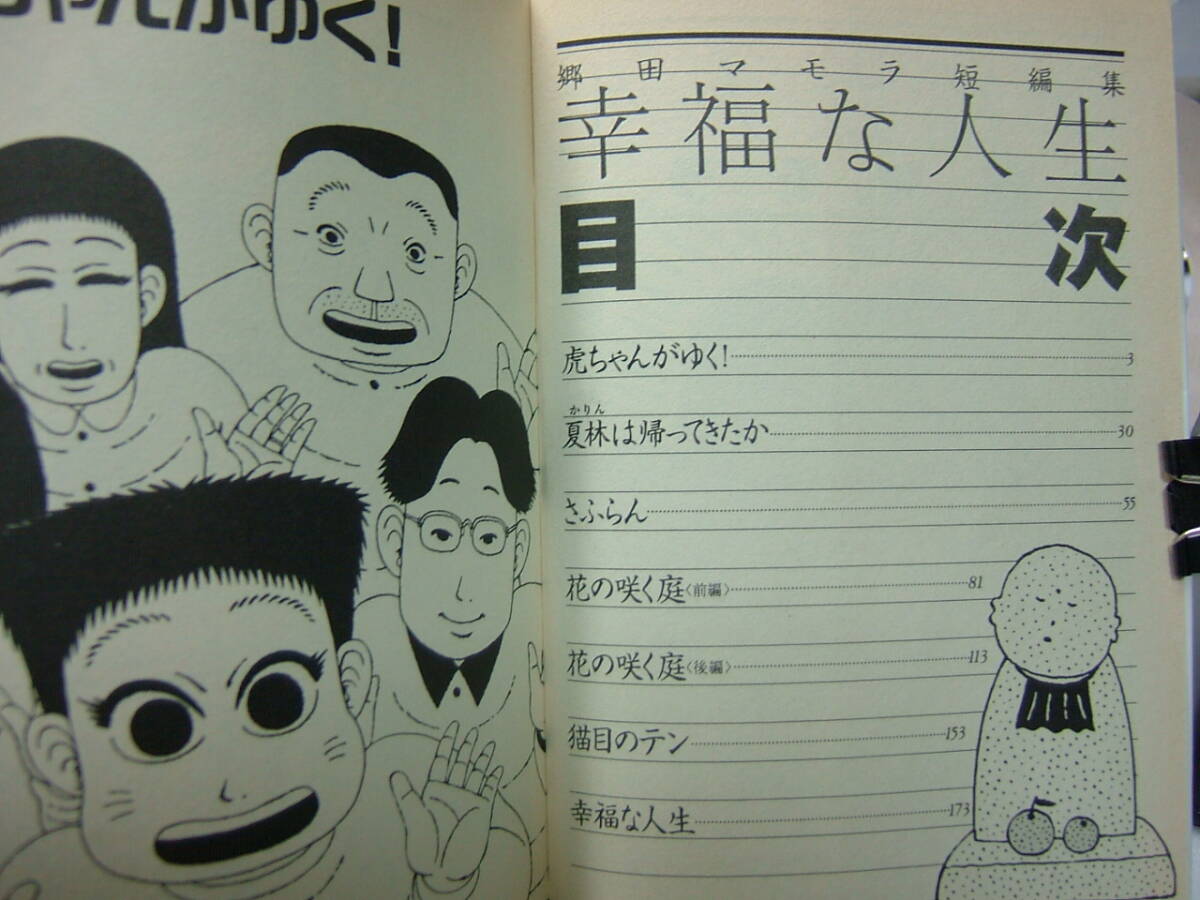 ゃんがゆく!
郷田マモラ短編集
幸福な人生
目次
虎ちゃんがゆく! 3
かりん
夏林は帰ってきたか 30
さふらん 55
花の咲く庭〈前編〉 81
花の咲く庭〈後編〉 113
猫目のテン 153
幸福な人生 173